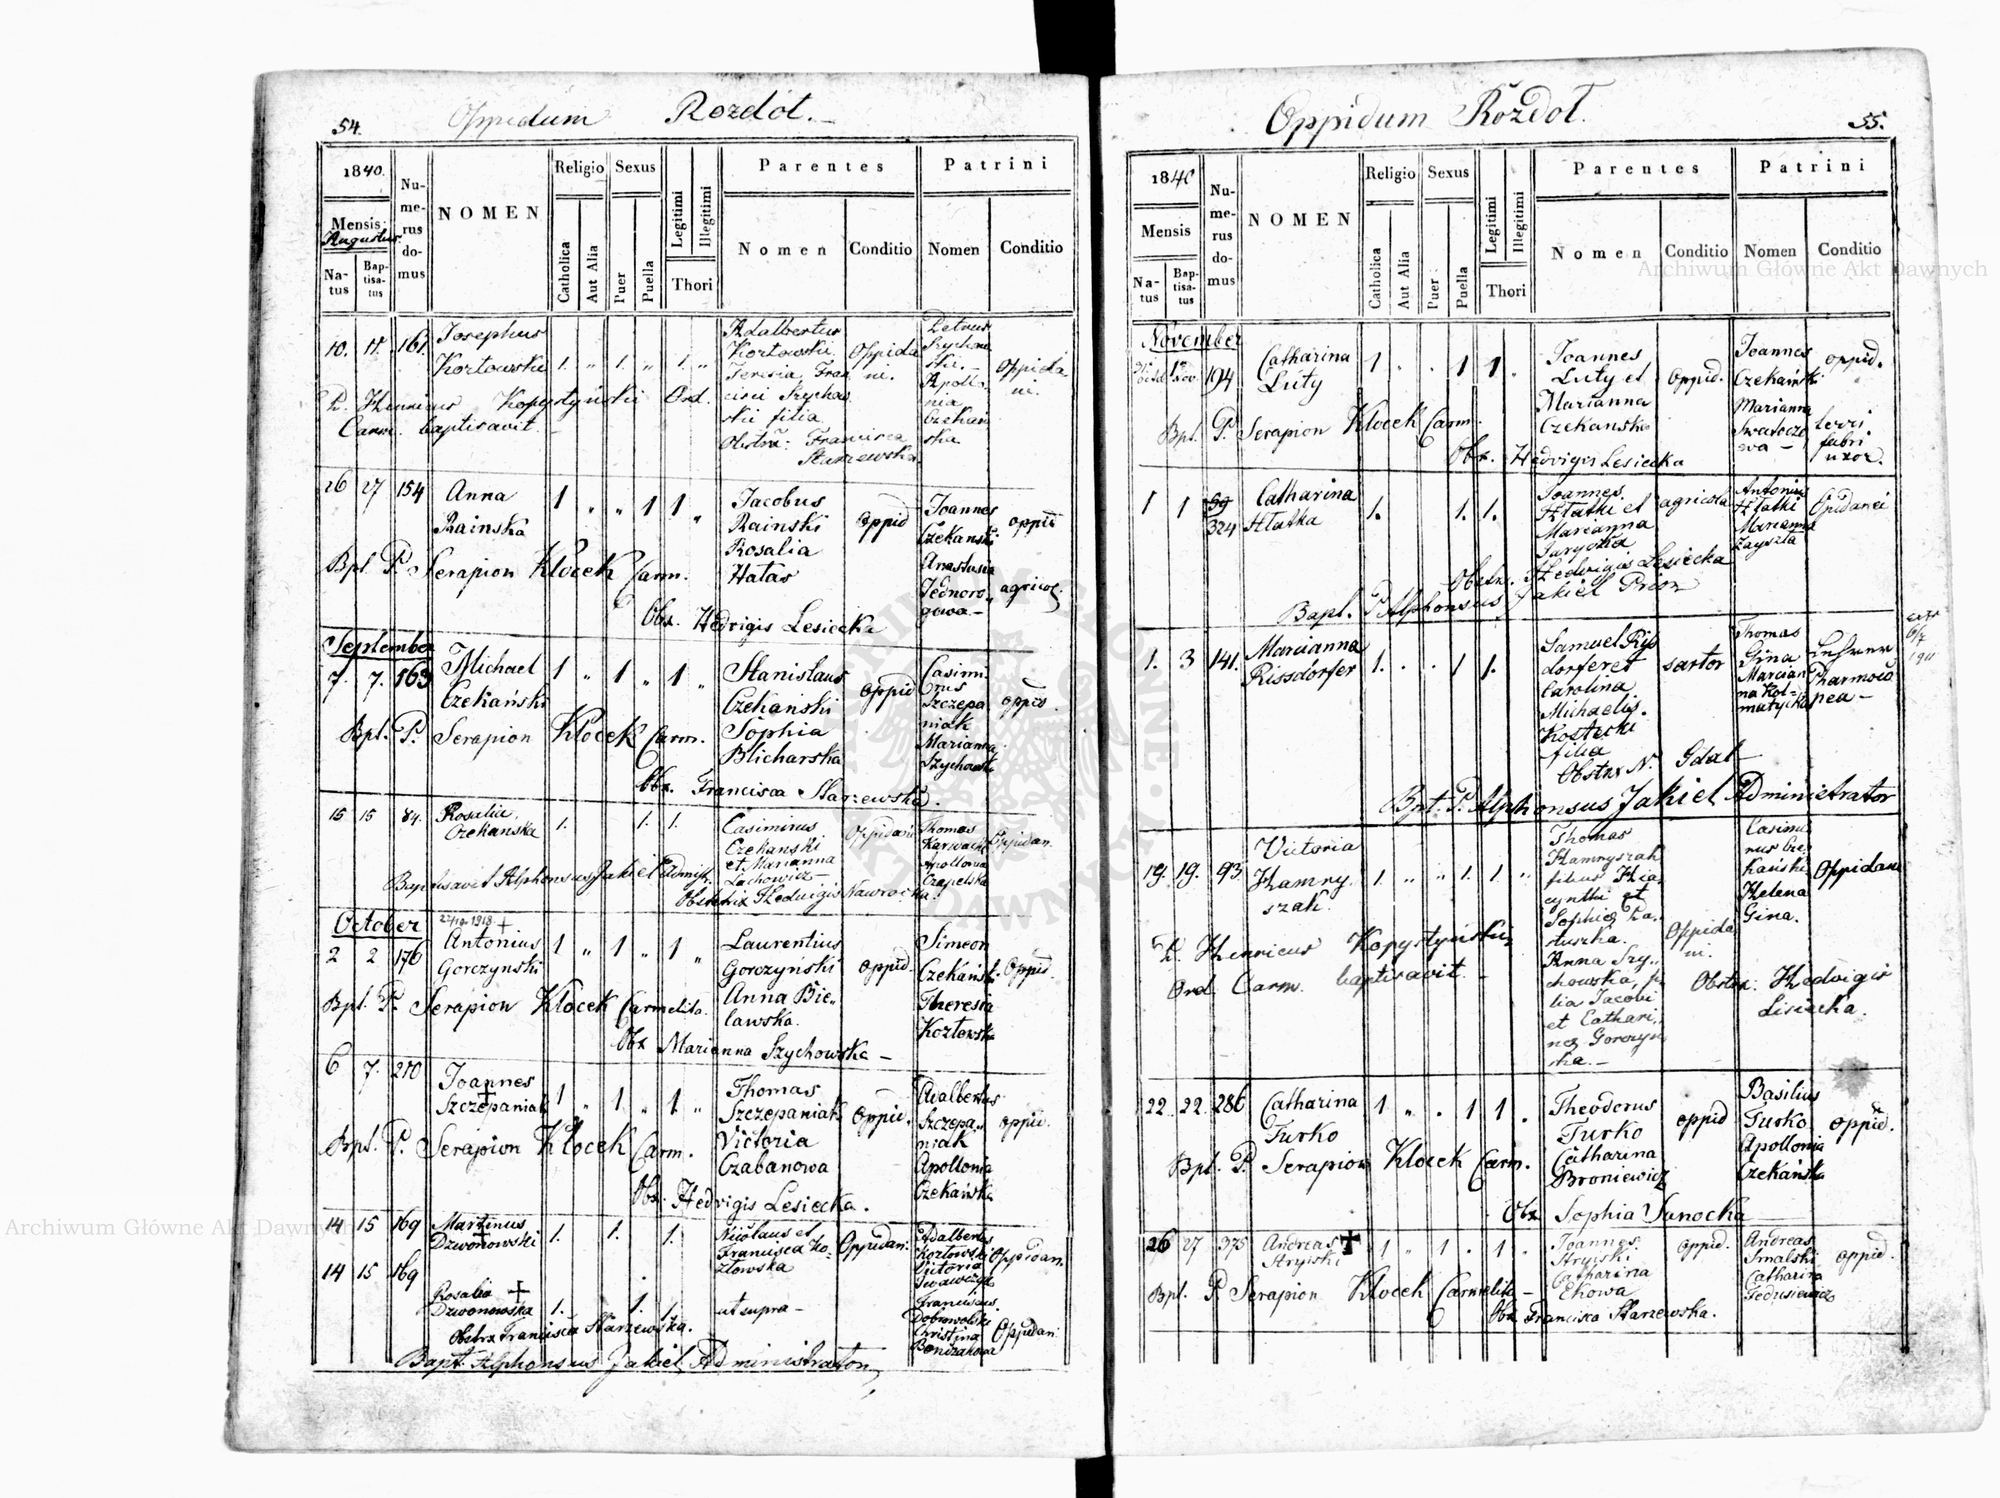 54.
Oppidum Rozdół.
1840.
Mensis
Augustus
Natus
Baptisatus
Numerus domus
NOMEN
Religio
Catholica
Aut Alia
Sexus
Puer
Puella
Legitimi
Illegitimi
Thori
Parentes
Nomen
Conditio
Patrini
Nomen
Conditio
10. 11. 161.
Josephus
Kozłowski
1. „ 1. „ 1. „
Adalbertus
Kozłowski
Teresia Fran
cisci Szychow
ski filia
Oppida
ni.
Petrus
Szychow
ski.
Apollo
nia
Czekań
ska
Oppida
ni.
P. Henricus Kopystyński Ord.
Carm. baptisavit.
Obstrx: Francisca
Starzewska.
26 27 154
Anna
Rainska
1 „ „ 1 1 „
Jacobus
Rainski
Rosalia
Hatas
oppid
Joannes
Czekański
Anastasia
Jednoro„
gowa
oppid
agricol.
Bpt. P. Serapion Klocek Carm.
Obx. Hedvigis Lesiecka
September
7. 7. 163
Michael
Czekański
1 „ 1 „ 1 „
Stanislaus
Czekański
Sophia
Blicharska
oppid
Casimi
rus
Szczepa
niak
Marianna
Szychowsk
oppid.
Bpt. P. Serapion Klocek Carm.
Obx. Francisca Starzewska.
15 15 84.
Rosalia
Czekańska
1. 1. 1.
Casimirus
Czekanski
et Marianna
Lachowicz
Oppidani
Thomas
Karwacki
Apollonia
Czapelska
Oppidan.
Baptisavit Alphonsus Jakiel Admistr.
Obstetrix Hedwigis Nawrocka.
October
2 2 176
Antonius
Gorczynski
1 „ 1 „ 1 „
Laurentius
Gorczyński
Anna Bie„
lawska.
oppid.
Simeon
Czekański
Theresia
Kozłowska
Oppid.
Bpt. P. Serapion Klocek Carmelita.
Obx Marianna Szychowska –
6 7. 270
Joannes
Szczepaniak
1 „ 1 „ 1. „
Thomas
Szczepaniak
Victoria
Czabanowa
oppid.
Adalbertus
Szczepa„
niak
Apollonia
Czekańska
oppid.
Bpt. P. Serapion Klocek Carm.
Obx. Hedvigis Lesiecka.
14 15 169
Martinus
Dzwonowski
1. 1. 1.
Nicolaus et
Francisca Ko-
złowska
Oppidani.
Adalbertus
Kozłowski
Victoria
Oppidani.
14 15 169
Rosalia
Dzwonowska
1. 1. 1.
ut supra –
Franciscus
Dobrowolski
Christina
Oppidani
Obstrx Francisca Starzewska.
Bapt. Alphonsus Jakiel Administrator
Oppidum Rozdoł.
55.
1840
Mensis
Natus
Baptisatus
Numerus domus
NOMEN
Religio
Catholica
Aut Alia
Sexus
Puer
Puella
Legitimi
Illegitimi
Thori
Parentes
Nomen
Conditio
Patrini
Nomen
Conditio
November
194
Catharina
Luty
1 . . 1 1 .
Joannes
Luty et
Marianna
Czekanska
oppid.
Joannes
Czekański
Marianna
oppid.
ferri
fabri
uxor.
Bpt. P. Serapion Klocek Carm.
Obx. Hedvigis Lesiecka
1 1 59
324
Catharina
Hłatka
1. 1. 1.
Joannes
Hłatki et
Marianna
agricola
Antonius
Hłatki
Marianna
Zayszła
Opidanei
Obstx. Hedwigis Lesiecka
Bapt. P. Alphonsus Jakiel Prior
1. 3 141.
Marianna
Rissdorfer
1. . . 1 1.
Samuel Ris
dorfer et
Carolina
Michaelis
Kostecki
filia
sartor
Thomas
Gina
Marian
na Kol=
matycka
Lehrer
Pharmaco
pea –
Obstrx N. Gdal
Bpt. P. Alphonsus Jakiel Administrator
19. 19. 93
Victoria
Hamry
szak.
1. „ „ 1. 1 „
Thomas
Hamryszak
filius Hia
cynthi et
Sophiæ Ka
tuszka.
Anna Szy„
chowska, fi
lia Jacobi
et Cathari„
næ Gorczyń
ska. –
Oppida
ni.
Casimi
rus Cze
kański
Helena
Gina.
Oppidani
P. Henricus Kopystyński
Ord. Carm. baptisavit. –
Obstrx: Hedvigis
Lisiecka.
22 22. 286
Catharina
Turko
1 „ . 1 1 .
Theodorus
Turko
Catharina
Broniewicz
oppid
Basilius
Turko
Apollonia
Czekańska
oppid.
Bpt. P. Serapion Klocek Carm.
Obx Sophia Sanocka
26 27 375
Andreas
Stryiski
1 „ 1 . 1 .
Joannes
Stryiski
Catharina
Ehowa
oppid.
Andreas
Smalski
Catharina
Fedusiewicz
oppid.
Bpt. P Serapion Klocek Carmelita –
Obx Francisca Starzewska.
Archiwum Główne Akt Dawnych
Archiwum Główne Akt Dawnych